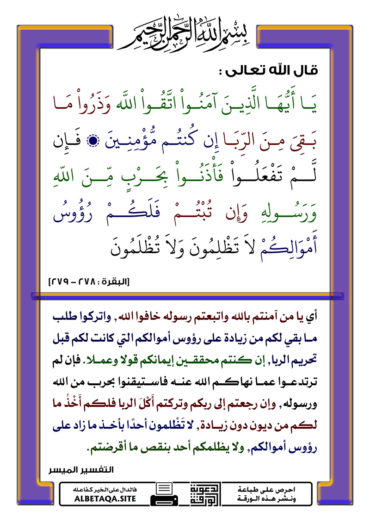 بسم الله الرحمن الرحيم
قال الله تعالى :
يَا أَيُّهَا الَّذِينَ آمَنُواْ اتَّقُواْ اللَّه وَذَرُواْ مَا
بَقِيَ مِنَ الرِّبَا إِن كُنتُم مُّؤْمِنِينَ ۞ فَإِن
لَّمْ تَفْعَلُواْ فَأْذَنُواْ بِحَرْبٍ مِّنَ اللّهِ
وَرَسُولِهِ وَإِن تُبْتُمْ فَلَكُمْ رُؤُوسُ
أَمْوَالِكُمْ لاَ تَظْلِمُونَ وَلاَ تُظْلَمُونَ
[البقرة : ٢٧٨ - ٢٧٩]
أي يا من آمنتم بالله واتبعتم رسوله خافوا الله , واتركوا طلب
ما بقي لكم من زيادة على رؤوس أموالكم التي كانت لكم قبل
تحريم الربا , إن كنتم محققين إيمانكم قولا وعملا. فإن لم
ترتدعوا عما نهاكم الله عنه فاستيقنوا بحرب من الله
ورسوله , وإن رجعتم إلى ربكم وتركتم أَكْلَ الربا فلكم أَخْذُ ما
لكم من ديون دون زيادة, لا تَظْلمون أحدًا بأخذ ما زاد على
رؤوس أموالكم, ولا يظلمكم أحد بنقص ما أقرضتم.
التفسير الميسر
احرص على طباعة
ونشر هذه الورقة
الدعوية
الورقة
فالدال على الخير كفاعله
ALBETAQA.SITE